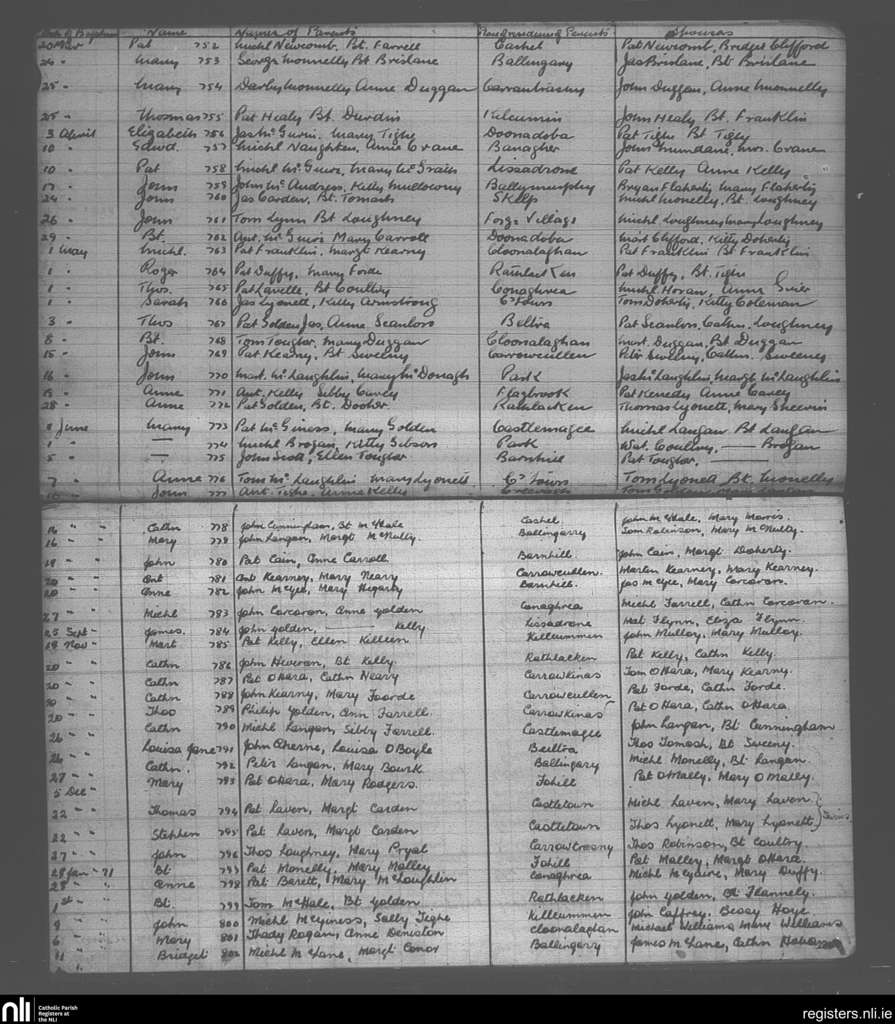 Date of Baptism Name Names of Parents Residence of Parents Sponsors
20 Mar Pat 752 Michl Newcomb, Bt. Farrell Cashel Pat Newcomb, Bridget Clifford
24 " Mary 753 George Monnelly Bt Brislane Ballingary Jas Brislane, Bt Brislane
25 " Mary 754 Darby Monnelly Anne Duggan John Duggan, Anne Monnelly
25 " Thomas 755 Pat Healy Bt. Durdin Kilcumin John Healy Bt. Franklin
3 April Elizabeth 756 Jas McGuire. Mary Tighe Doonadoba Pat Tighe Bt Tighe
10 " Edwd. 757 Michl Naughten, Anne Crane Banagher John Mundane, Mrs. Crane
10 " Pat 758 Michl McGuire, Mary McGrath Lissadrone Pat Kelly Anne Kelly
17 " John 759 John McAndrew, Kitty Mullowny Ballymurphy Bryan Flaherty Mary Flaherty
24 " John 760 Jas Carden, Bt. Tomash Skelp Michl Monelly, Bt. Loughney
26 " John 761 Tom Lynn Bt Loughney Forge Village Michl Loughney Mary Loughney
29 " Bt. 762 Ant. McGuire Mary Carroll Doonadoba Mart Clifford, Kitty Doherty
1 May Michl. 763 Pat Franklin, Margt Kearney Cloonalaghan Pat Franklin Bt Franklin
1 " Roger 764 Pat Duffy, Mary Forde Rathlacken Pat Duffy, Bt. Tighe
1 " Thos. 765 Pat Lavelle, Bt Coultry Conaghrea Michl Horan, Anne
1 " Sarah 766 Jas Lyonett, Kitty Armstrong C'Town Tom Doherty, Kitty Coleman
3 " Thos 767 Pat Golden Jas, Anne Scanlon Beltra Pat Scanlon, Cathn. Loughney
8 " Bt. 768 Tom Tougher, Mary Duggan Cloonalaghan Mart. Duggan, Bt Duggan
15 " John 769 Pat Kearny, Bt Sweeny Carrowcullen Peter Sweeny, Cathn. Sweeney
16 " John 770 Mart. McLaughlin, Mary McDonagh Park Jas McLaughlin, Margt McLaughlin
19 " Anne 771 Ant. Kelly Sibby Cavey Flaxbrook Pat Kenedy Anne Cavey
28 " Anne 772 Pat Golden, Bt. Dooher Rathlacken Thomas Lyonett, Mary Sheerin
1 June Mary 773 Pat McGiness, Mary Golden Castlemagee Michl Langan Bt Langan
1 " — 774 Michl Brogan, Kitty Gibson Park Wat. Coultry, — Brogan
5 " — 775 John Scott, Ellen Tougher Barnhill Pat Tougher, —
7 " Anne 776 Tom McLaughlin Mary Lyonett C'Town Tom Lyonett Bt. Monelly
John 777 Ant. Tighe, Anne Kelly
14 " " Cathn 778 John Cunningham, Bt McHale Cashel John McHale, Mary Morris.
16 " " Mary 779 John Langan, Margt McNulty Ballingarry Tom Robinson, Mary McNulty.
19 " " John 780 Pat Cain, Anne Carroll Barnhill John Cain, Margt Doherty.
20 " " Ant 781 Ant Kearney, Mary Neary Carrowcullen Martin Kearney, Mary Kearney.
20 " " Anne 782 John McGee, Mary Hegarty Barnhill. Jas McGee, Mary Corcoran.
27 " " Michl 783 John Corcoran, Anne Golden Conaghrea Michl Farrell, Cathn Corcoran.
25 Sept " James. 784 John Golden, — Kelly Lissadrone Mat Flynn, Eliza Flynn.
19 Nov " Mart 785 Pat Kelly, Ellen Killeen Killcummen John Mulloy, Mary Mulloy.
20 " " Cathn 786 John Heveran, Bt Kelly. Rathlacken Pat Kelly, Cathn Kelly.
20 " " Cathn 787 Pat OHara, Cathn Neary Carrowkinas Tom OHara, Mary Kearny.
20 " " Cathn 788 John Kearny, Mary Foorde Carrowcullen Pat Forde, Cathn Forde.
20 " " Thos 789 Philip Golden, Ann Farrell. Carrowkinas Pat OHara, Cathn OHara.
26 " " Cathn 790 Michl Langan, Sibby Farrell. Castlemagee John Langan, Bt Cunningham
26 " " Louisa Jane 791 John Aherne, Louisa OBoyle Beeltra Thos Tomash, Bt Sweeny.
27 " " Cathn. 792 Peter Langan, Mary Bourk Ballingarry Michl Monelly, Bt Langan.
5 Dec " Mary 793 Pat OHara, Mary Rodgers. Fohill Pat OMally, Mary OMalley.
22 " " Thomas 794 Pat Laven, Margt Carden Castletown Michl Laven, Mary Laven } Twins.
22 " " Stephen 795 Pat Laven, Margt Carden Castletown Thos Lyonett, Mary Lyonett
27 " " John 796 Thos Loughney, Mary Pryal Carrowtrasny Thos Robinson, Bt Coultry
28 Jan " 71 Bt 797 Pat Monelly, Mary Malley Fohill Pat Malley, Margt OHara.
28 " " Anne 798 Pat Barett, Mary McLoughlin Conaghrea Michl McGuire, Mary Duffy.
1st " " Bt. 799 Tom McHale, Bt Golden Rathlacken John Golden, Bt Flannely.
4 " " John 800 Michl McGuiness, Sally Tighe Killcummen John Caffrey, Bessy Hoye.
6 " " Mary 801 Thady Rogan, Anne Deniston Cloonalaghan Michael Williams Mary Williams
11 " " Bridget 802 Michl McLane, Margt Conor Ballingarry James McLane, Cathn
nli Catholic Parish
Registers at
the NLI
registers.nli.ie